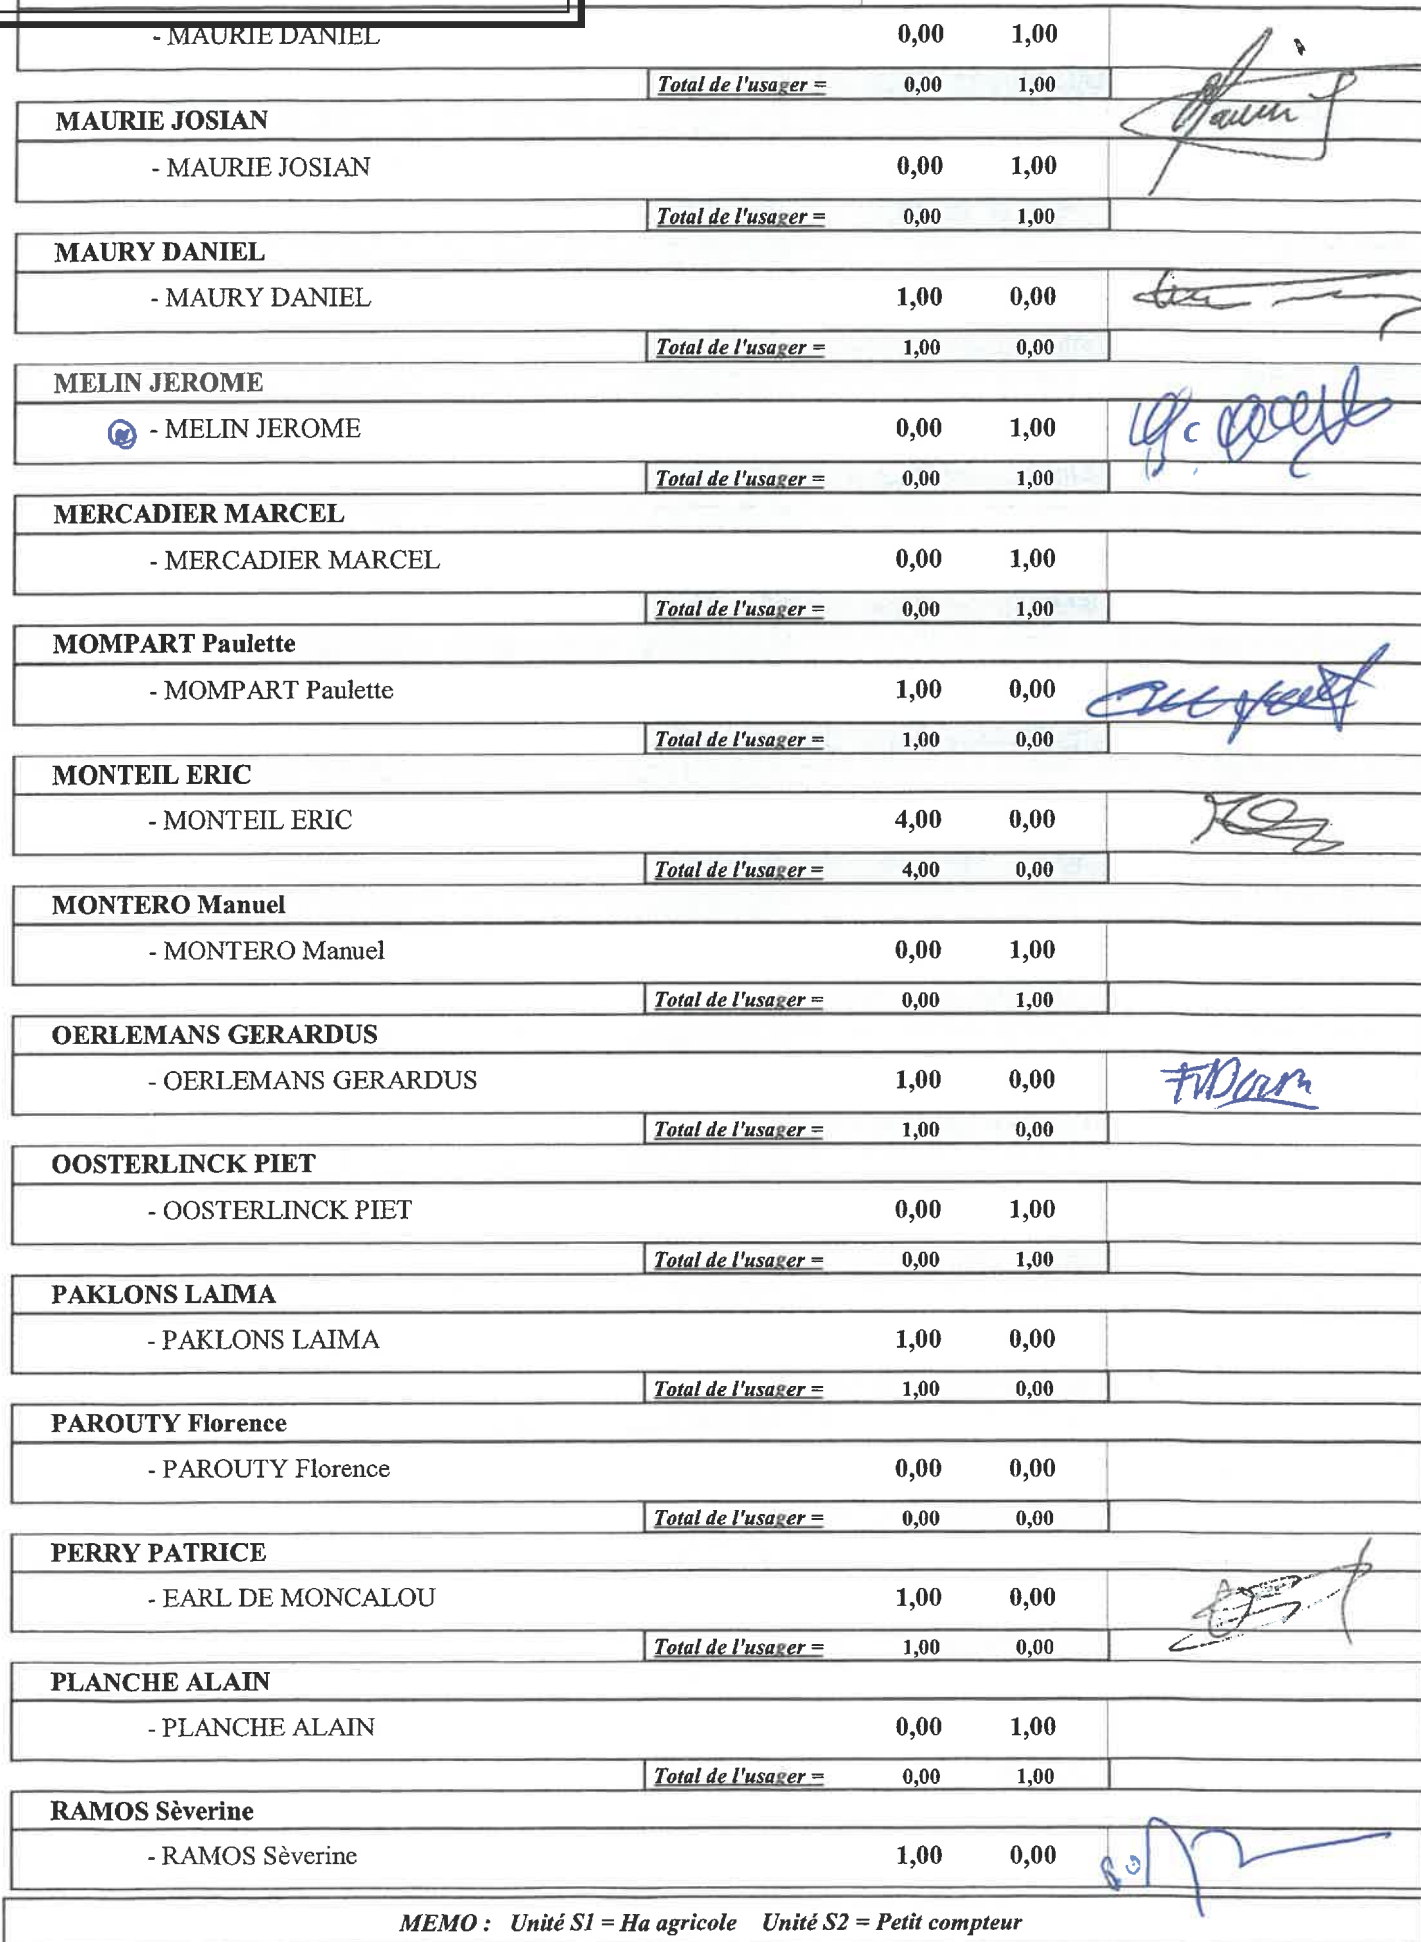 - MAURIE DANIEL 0,00 1,00
Total de l'usager = 0,00 1,00
MAURIE JOSIAN
- MAURIE JOSIAN 0,00 1,00
Total de l'usager = 0,00 1,00
MAURY DANIEL
- MAURY DANIEL 1,00 0,00
Total de l'usager = 1,00 0,00
MELIN JEROME
- MELIN JEROME 0,00 1,00
Total de l'usager = 0,00 1,00
MERCADIER MARCEL
- MERCADIER MARCEL 0,00 1,00
Total de l'usager = 0,00 1,00
MOMPART Paulette
- MOMPART Paulette 1,00 0,00
Total de l'usager = 1,00 0,00
MONTEIL ERIC
- MONTEIL ERIC 4,00 0,00
Total de l'usager = 4,00 0,00
MONTERO Manuel
- MONTERO Manuel 0,00 1,00
Total de l'usager = 0,00 1,00
OERLEMANS GERARDUS
- OERLEMANS GERARDUS 1,00 0,00
Total de l'usager = 1,00 0,00
OOSTERLINCK PIET
- OOSTERLINCK PIET 0,00 1,00
Total de l'usager = 0,00 1,00
PAKLONS LAIMA
- PAKLONS LAIMA 1,00 0,00
Total de l'usager = 1,00 0,00
PAROUTY Florence
- PAROUTY Florence 0,00 0,00
Total de l'usager = 0,00 0,00
PERRY PATRICE
- EARL DE MONCALOU 1,00 0,00
Total de l'usager = 1,00 0,00
PLANCHE ALAIN
- PLANCHE ALAIN 0,00 1,00
Total de l'usager = 0,00 1,00
RAMOS Sèverine
- RAMOS Sèverine 1,00 0,00
MEMO : Unité S1 = Ha agricole Unité S2 = Petit compteur